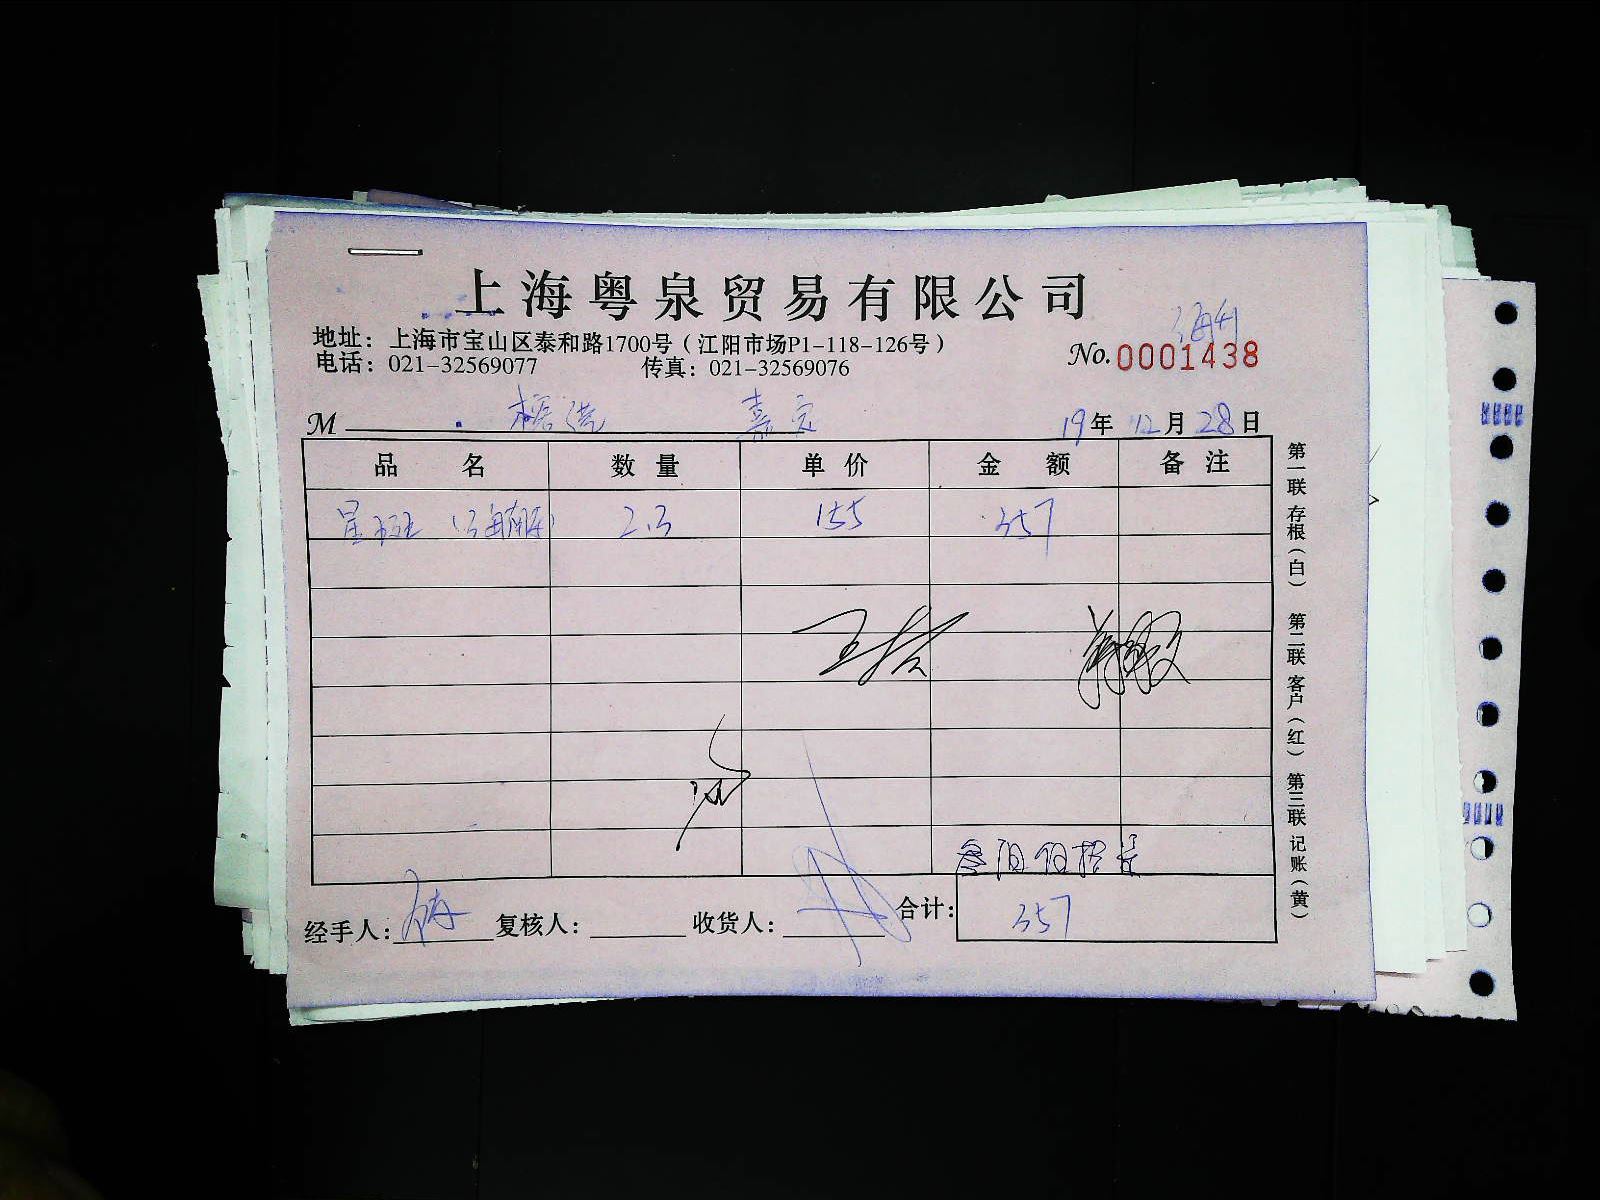 上海粤泉贸易有限公司
地址：上海市宝山区泰和路1700号（江阳市场P1-118-126号）
电话：021-32569077 传真：021-32569076
No.0001438
M 嘉定 19年12月28日
品名 数量 单价 金额 备注
星斑 2.3 155 357
合计：357
经手人： 复核人： 收货人：
第一联 存根（白） 第二联 客户（红） 第三联 记账（黄）